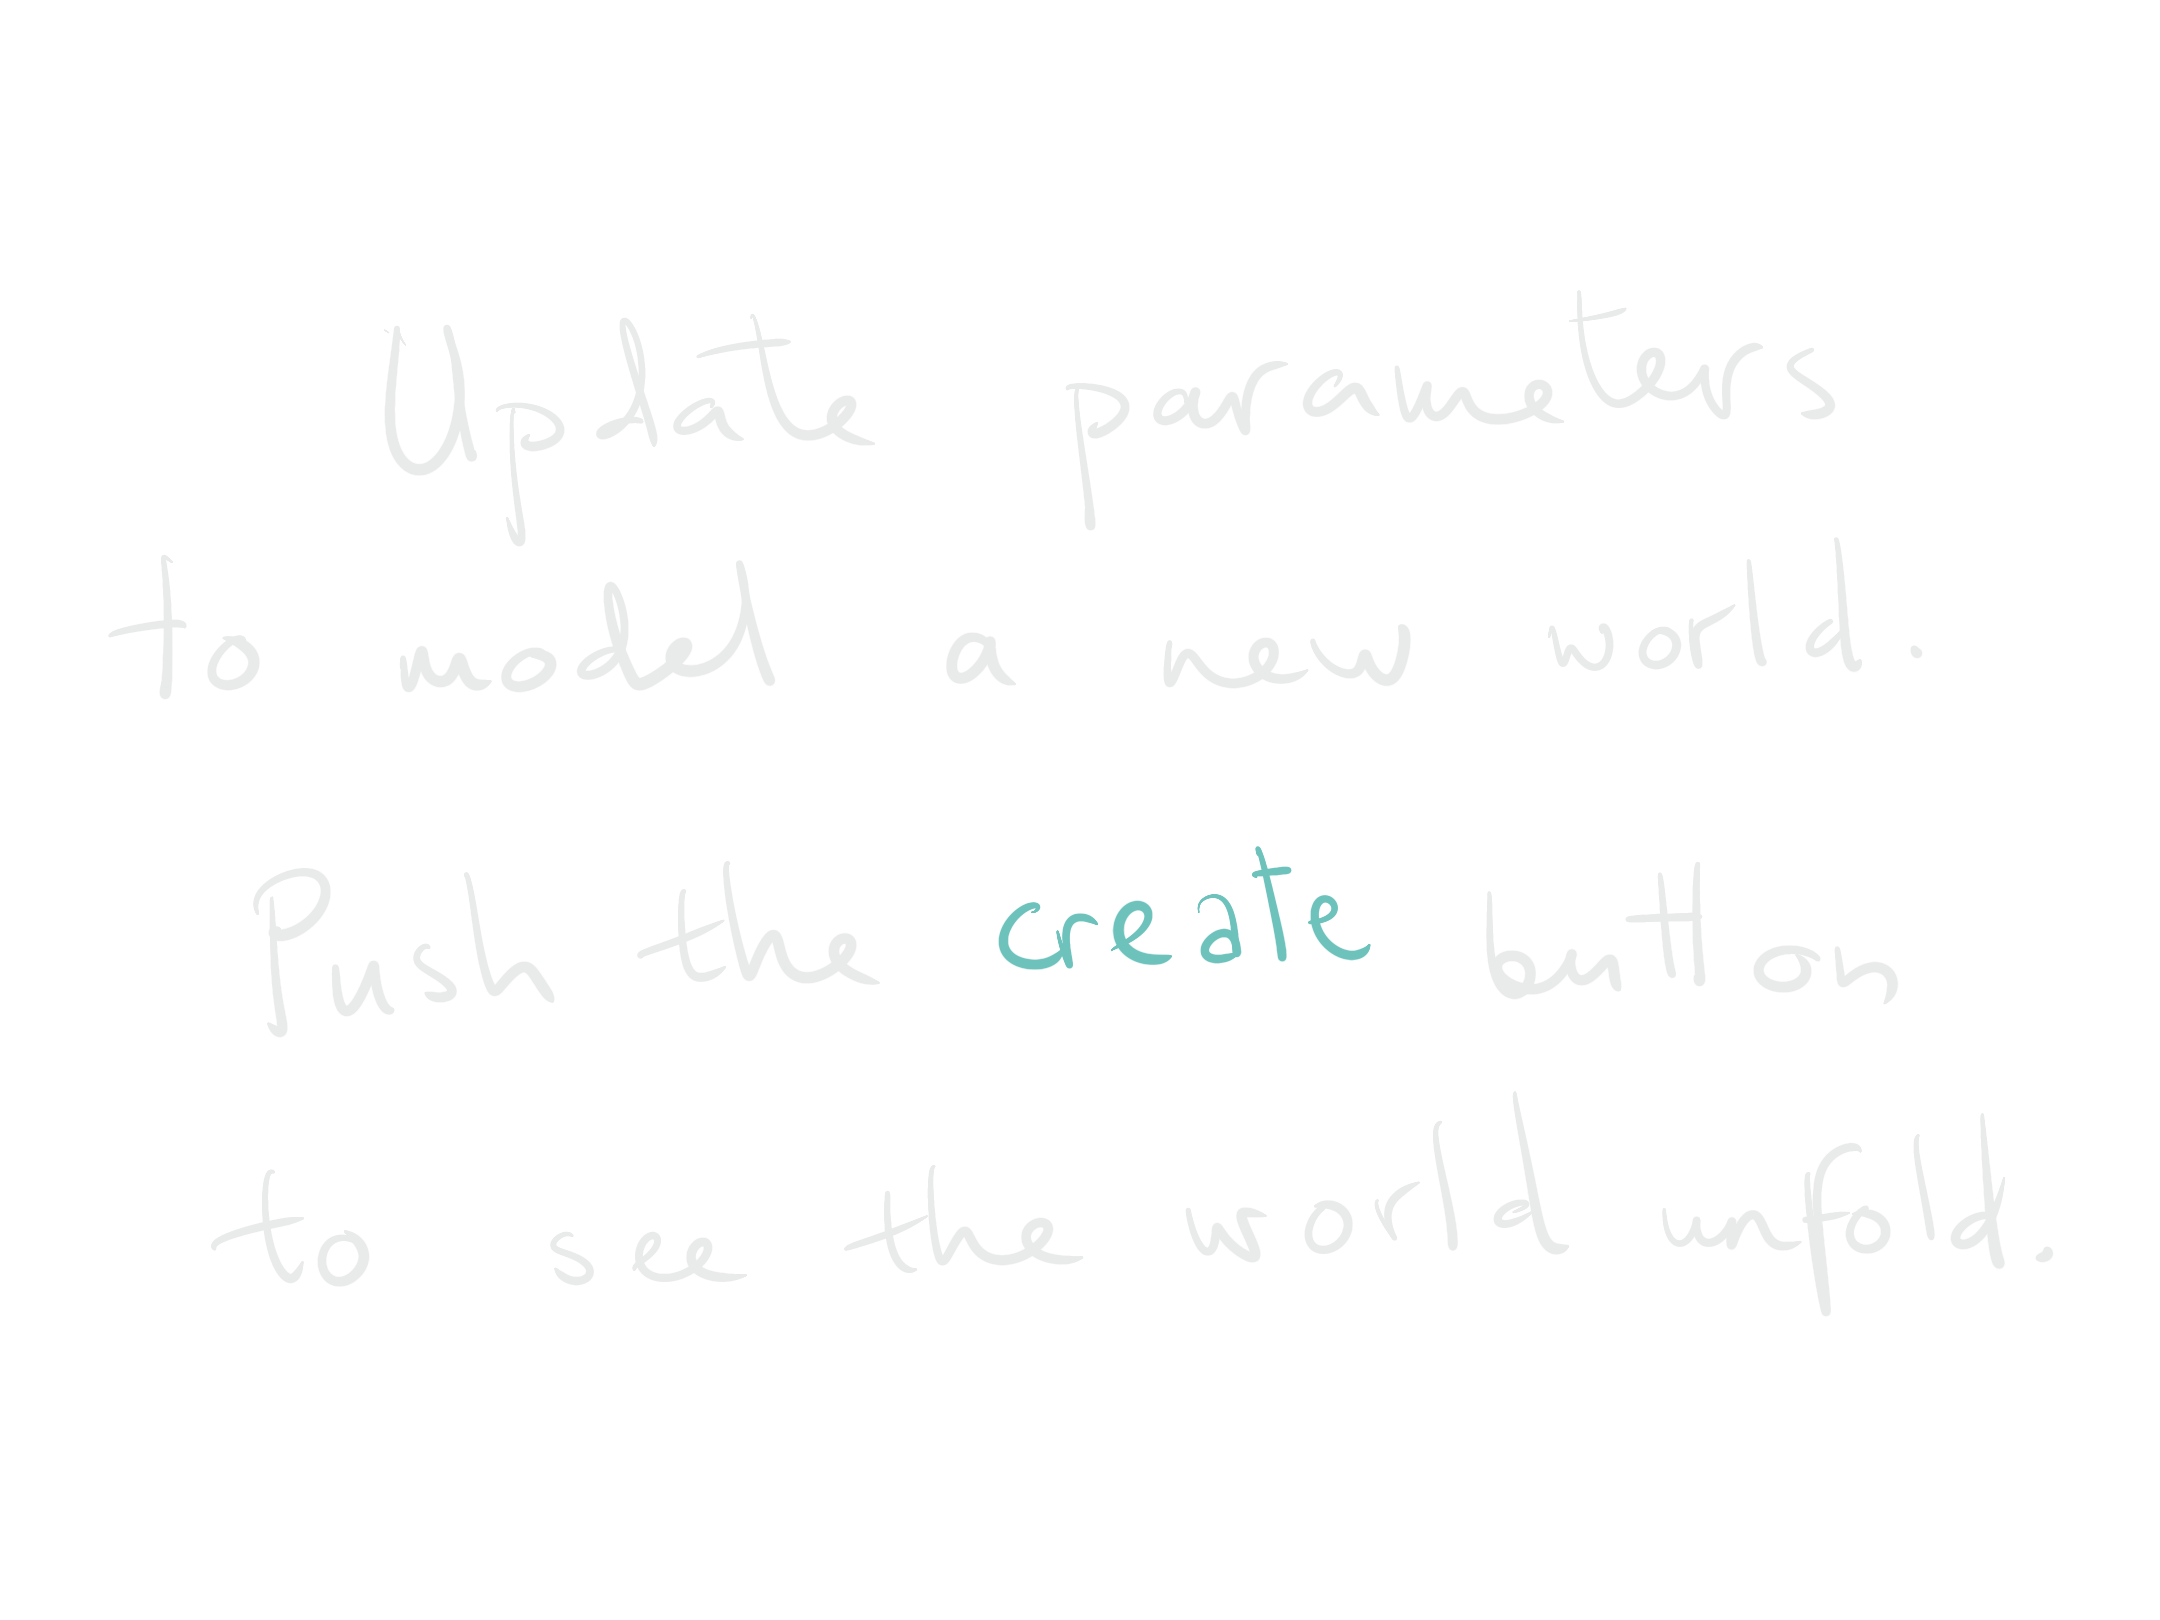 Update parameters
to model a new world.
Push the create button
to see the world unfold.